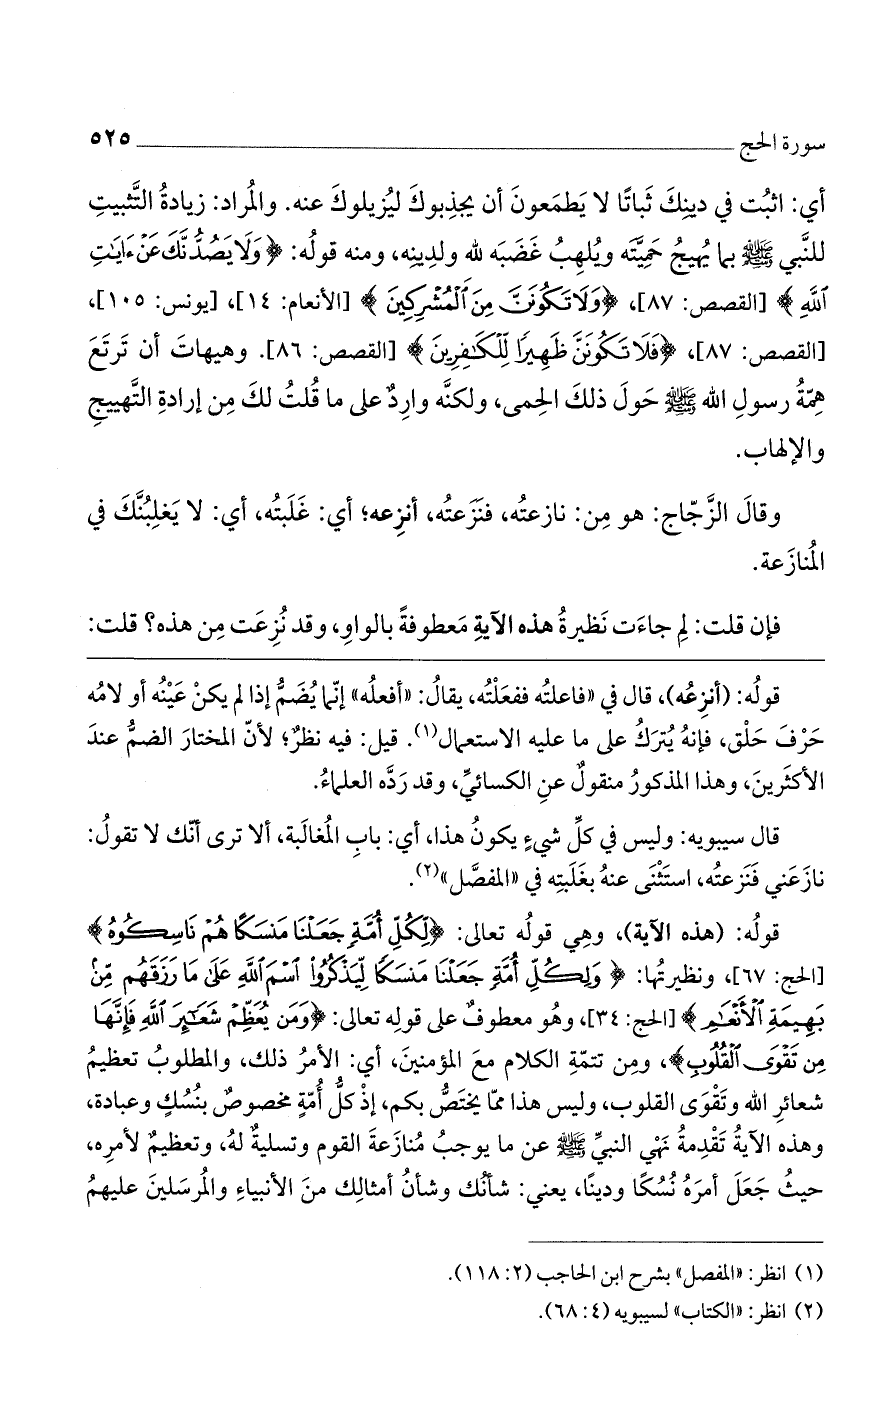 سورة الحج ٥٢٥
أي: اثبُت في دينِكَ ثَباتًا لا يَطمَعونَ أن يجذِبوكَ ليُزيلوكَ عنه. والمُراد: زيادةُ التَّثبيتِ
للنَّبي ﷺ بما يُهيجُ حَمِيَّتَه ويُلهِبُ غَضَبَه لله ولدِينِه، ومنه قولُه: ﴿وَلَا يَصُدُّنَّكَ عَنْ ءَايَٰتِ
ٱللَّهِ﴾ [القصص: ٨٧]، ﴿وَلَا تَكُونَنَّ مِنَ ٱلْمُشْرِكِينَ﴾ [الأنعام: ١٤]، [يونس: ١٠٥]،
[القصص: ٨٧]، ﴿فَلَا تَكُونَنَّ ظَهِيرًا لِّلْكَٰفِرِينَ﴾ [القصص: ٨٦]. وهيهاتَ أن تَرتَعَ
هِمّةُ رسولِ الله ﷺ حَولَ ذلكَ الحِمى، ولكنَّه واردٌ على ما قُلتُ لكَ مِن إرادةِ التَّهييجِ
والإلهاب.
وقالَ الزَّجّاج: هو مِن: نازعتُه، فنَزَعتُه، أنزِعه؛ أي: غَلَبتُه، أي: لا يَغلِبُنَّكَ في
المُنازَعة.
فإن قلت: لِم جاءَت نَظيرةُ هذه الآيةِ مَعطوفةً بالواوِ، وقد نُزِعَت مِن هذه؟ قلت:
قولُه: (أنزِعُه)، قال في «فاعلتُه ففعَلْتُه، يقالُ: «أفعلُه» إنّما يُضَمُّ إذا لم يكنْ عَيْنُه أو لامُه
حَرْفَ حَلْق، فإنهُ يُترَكُ على ما عليه الاستعمال(١). قيل: فيه نظرٌ؛ لأنّ المختارَ الضمُّ عندَ
الأكثَرينَ، وهذا المذكورُ منقولٌ عنِ الكسائيِّ، وقد رَدَّه العلماءُ.
قال سيبويه: وليس في كلِّ شيءٍ يكونُ هذا، أي: بابِ المُغالَبة، ألا ترى أنّك لا تقولُ:
نازَعَني فَنَزَعتُه، استَثْنَى عنهُ بغَلَبتِه في «المفصَّل»(٢).
قولُه: (هذه الآية)، وهي قولُه تعالى: ﴿لِّكُلِّ أُمَّةٍ جَعَلْنَا مَنسَكًا هُمْ نَاسِكُوهُ﴾
[الحج: ٦٧]، ونظيرتُها: ﴿وَلِكُلِّ أُمَّةٍ جَعَلْنَا مَنسَكًا لِّيَذْكُرُوا۟ ٱسْمَ ٱللَّهِ عَلَىٰ مَا رَزَقَهُم مِّنۢ
بَهِيمَةِ ٱلْأَنْعَٰمِ﴾ [الحج: ٣٤]، وهُو معطوفٌ على قولِه تعالى: ﴿وَمَن يُعَظِّمْ شَعَٰٓئِرَ ٱللَّهِ فَإِنَّهَا
مِن تَقْوَى ٱلْقُلُوبِ﴾، ومِن تتمّةِ الكلام معَ المؤمنينَ، أي: الأمرُ ذلك، والمطلوبُ تعظيمُ
شعائرِ الله وتَقْوَى القلوب، وليس هذا ممّا يختَصُّ بكم، إذْ كلُّ أُمّةٍ مخصوصٌ بنُسُكٍ وعبادة،
وهذه الآيةُ تَقْدِمةُ نَهْيِ النبيِّ ﷺ عن ما يوجبُ مُنازَعةَ القوم وتسليةٌ لهُ، وتعظيمٌ لأمرِه،
حيثُ جَعَلَ أمرَهُ نُسُكًا ودينًا، يعني: شأنُك وشأنُ أمثالِك منَ الأنبياءِ والمُرسَلينَ عليهمُ
(١) انظر: «المفصل» بشرح ابن الحاجب (٢: ١١٨).
(٢) انظر: «الكتاب» لسيبويه (٤: ٦٨).